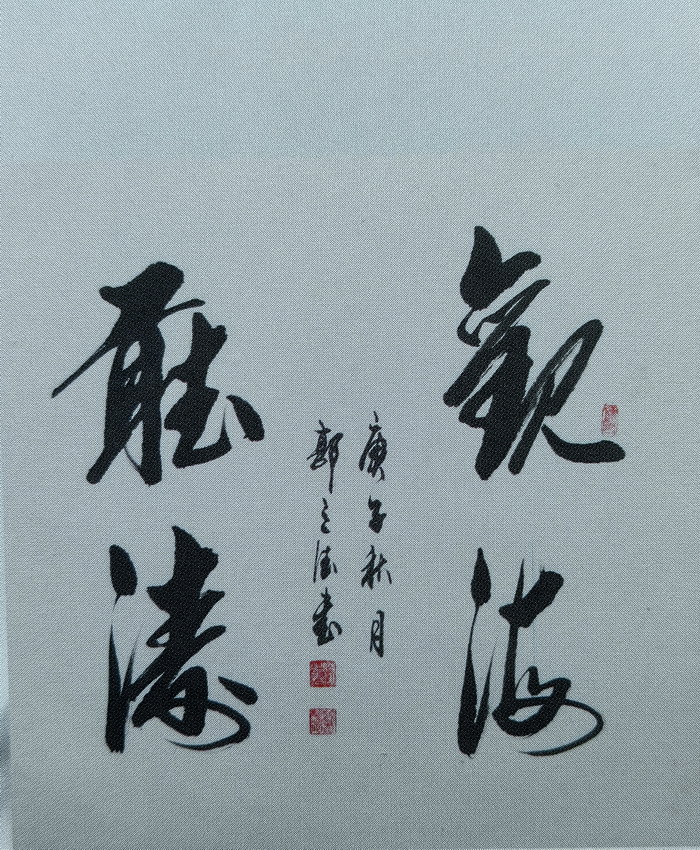 觀海
聽濤
庚子秋月
郭之法書